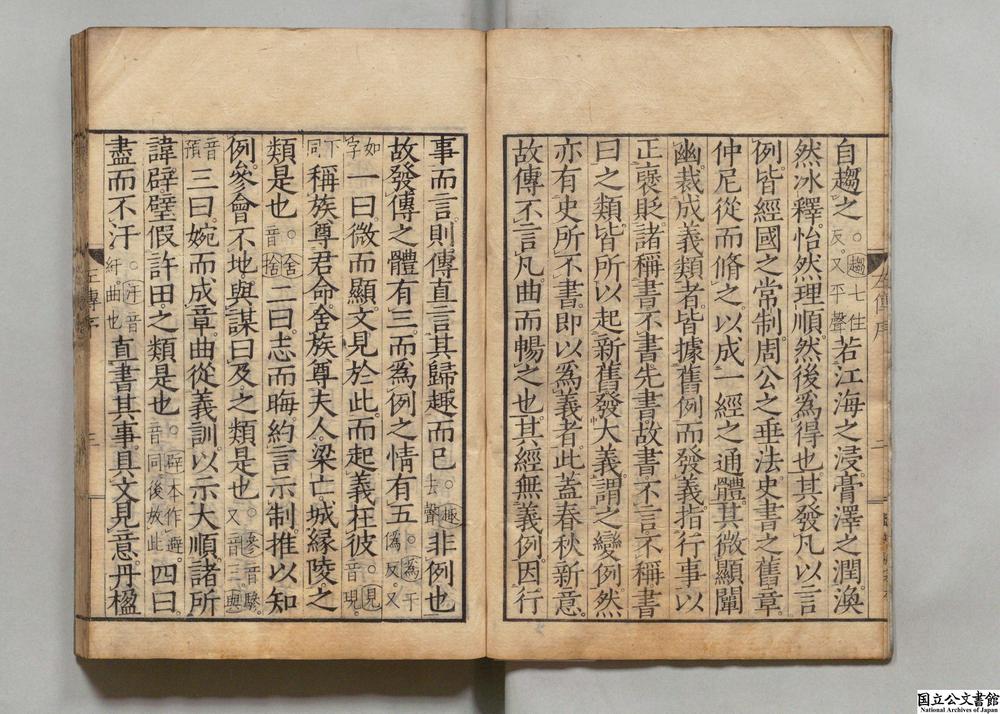 自趨之。趨七住反又平聲若江海之浸膏澤之潤渙
然冰釋怡然理順然後為得也其發凡以言
例皆經國之常制周公之垂法史書之舊章
仲尼從而脩之以成一經之通體其微顯闡
幽裁成義類者皆據舊例而發義指行事以
正褒貶諸稱書不書先書故書不言不稱書
曰之類皆所以起新舊發大義謂之變例然
亦有史所不書即以為義者此蓋春秋新意
故傳不言凡曲而暢之也其經無義例因行
左傳序
二
事而言則傳直言其歸趣而已。趣去聲非例也
故發傳之體有三而為例之情有五。為于偽反又
如字一曰微而顯文見於此而起義在彼。見音現
下同稱族尊君命舍族尊夫人梁亡城緣陵之
類是也。舍音捨二曰志而晦約言示制推以知
例參會不地與謀曰及之類是也。參音驂又音三與
音預三曰婉而成章曲從義訓以示大順諸所
諱辟璧假許田之類是也。辟本作避音同後放此四曰
盡而不汙。汙音紆曲也直書其事具文見意丹楹
左傳序
三
国立公文書館
National Archives of Japan